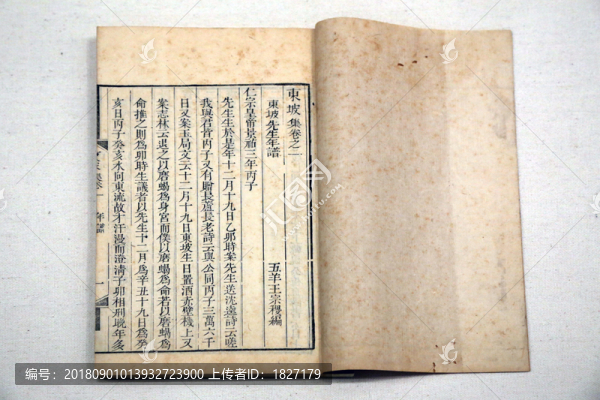 東坡集卷之一
東坡先生年譜
五羊王宗稷編
仁宗皇帝景祐三年丙子
先生生於是年十二月十九日乙卯時案先生送沈逵詩云嗟
我與君皆丙子又有贈長蘆長老詩云與公同丙子三萬六千
日又案玉局文云十二月十九日東坡生日置酒赤壁磯上又
案志林云退之以磨蝎爲身宮而僕以磨蝎爲命若以磨蝎爲
命推之則爲卯時生議者以先生十二月爲辛丑十九日爲癸
亥日丙子癸亥水向東流故才汗漫而澄清子卯相刑晚年多
年譜
一
汇图网
编号:20180901013932723900 上传者ID:1827179